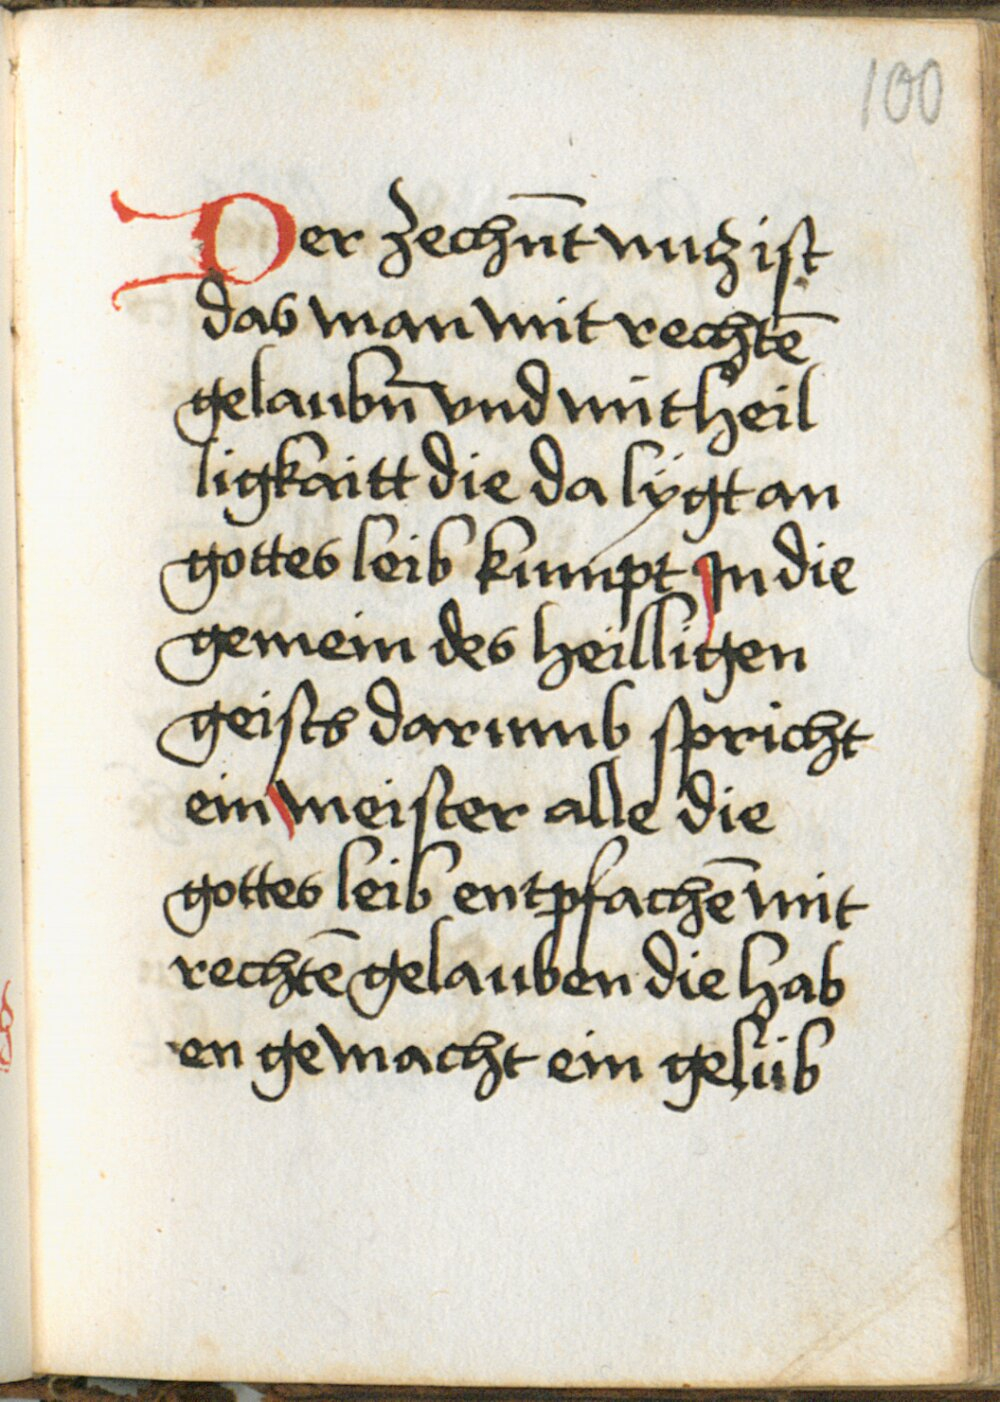 100
Der zechn̄t nutz ist
das man mit rechtē
gelaubn̄ vnd mit heil
ligkaitt die da lÿgt an
gottes leib kumpt In die
gemein des heilligen
geists darumb spricht
ein meister alle die
gottes leib entpfachē mit
rechtē gelauben die hab
en gemacht ein gelüb